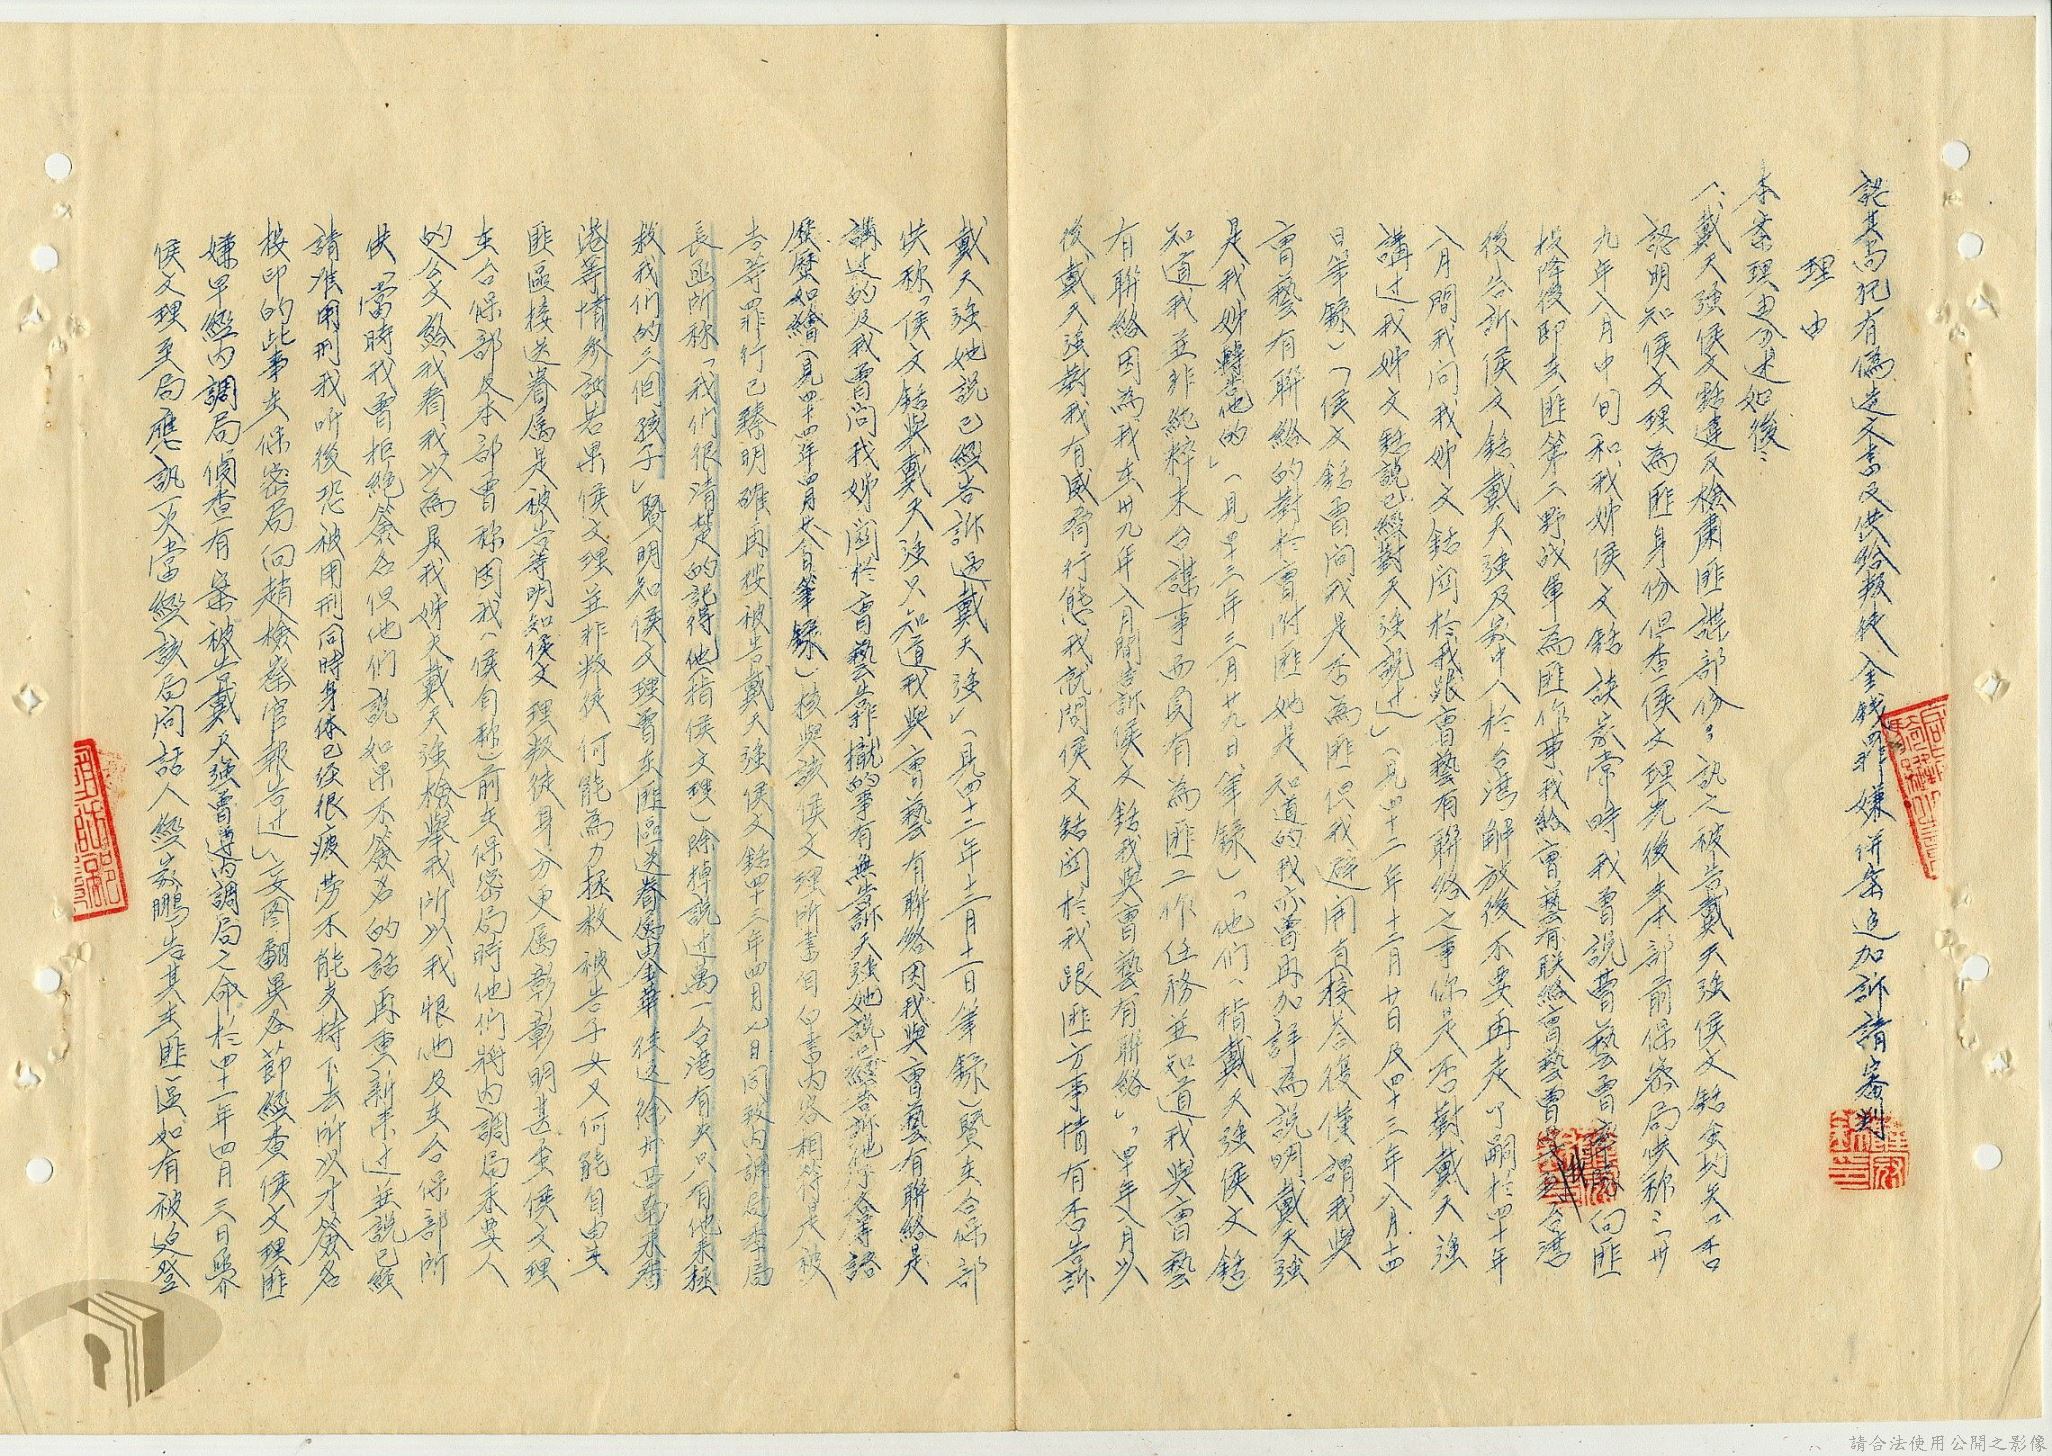 認其尚犯有偽造文書及供給叛徒金錢罪嫌併案追加訴請審判
理由
本案理由分述如後：
一、戴天強侯文鋙違反檢肅匪諜部份：訊之被告戴天強侯文鋙全均矢口否
認明知侯文理為匪身份但查侯文理先後来本部前保密局供称：「卅
九年八月中旬和我姊侯文鋙談家常時我曾說曹藝曾率隊向匪
投降後即去匪第二野战軍為匪作事我給曹藝有联絡曹藝曾 台灣
後告訴侯文鋙戴天強及家中人於台湾解放後不要再走了嗣於四十年
八月間我问我姊文鋙関於我跟曹藝有聯絡之事你是否對戴天強
講过我姊文鋙說已經對天強說过」（見四十二年十二月廿日及四十三年八月十四
日筆錄）「侯文鋙曾问我是否為匪但我避開直接答復僅謂我與
曹藝有聯絡的對於曹附匪她是知道的我亦曾再加詳為說明戴天強
是我姊轉告他的」（見四十三年三月廿九日筆錄）「他們（指戴天強侯文鋙）
知道我並非純粹来台謀事而負有為匪工作任務並知道我與曹藝
有聯絡因為我在卅九年八月間告訴侯文鋙我與曹藝有聯絡」，四十年八月以
後戴天強對我有威脅行態我就問侯文鋙関於我跟匪方事情有否告訴
戴天強她說已經告訴过戴天強」（見四十二年十二月十一日筆錄）暨在台保部
供称「侯文鋙與戴天強只知道我與曹藝有聯絡因我與曹藝有聯絡是
講过的及我曾问我姊関於曹藝告訴 的事有無告訴天強她說已經告訴他 各等語
歷歷如繪（見四十四年四月廿八日筆錄）核與該侯文理所書自白書内容相符是被
告等罪行已臻明確再按被告戴天強侯文鋙四十三年四月八日同致内調局季局
長函所称「我們很清楚的記得他（指侯文理）除掉說过萬一台湾有失只有他来拯
救我們的三個孩子」暨明知侯文理曾在匪區送眷属由金華徒返徐州再離来香
港等情参証若果侯文理並非叛徒何能為力拯救被告子女又何能自由去
匪區接送眷属是被告等明知侯文理叛徒身分更属彰彰明甚至侯文理
在台保部及本部曹称因我（侯自称）前在保密局時他們将内調局来要人
的公文給我看我以為是我姊夫戴天強檢舉我所以我恨他及在台保部所
供「當時我曾拒絶簽名但他們說如果不簽名的話再重新来过並說已經
請准用刑我听後恐被用刑同時身体已经很疲劳不能支持下去所以才簽名
按印的此事在保密局向趙檢察官報告过」妄图翻異各節經查侯文理匪
嫌早經内調局偵查有案被告戴天強曾遵内調局之命於四十一年四月三日舉
侯文理至局應訊一次當經該局问話人經家鵬告其去匪區如有被迫登